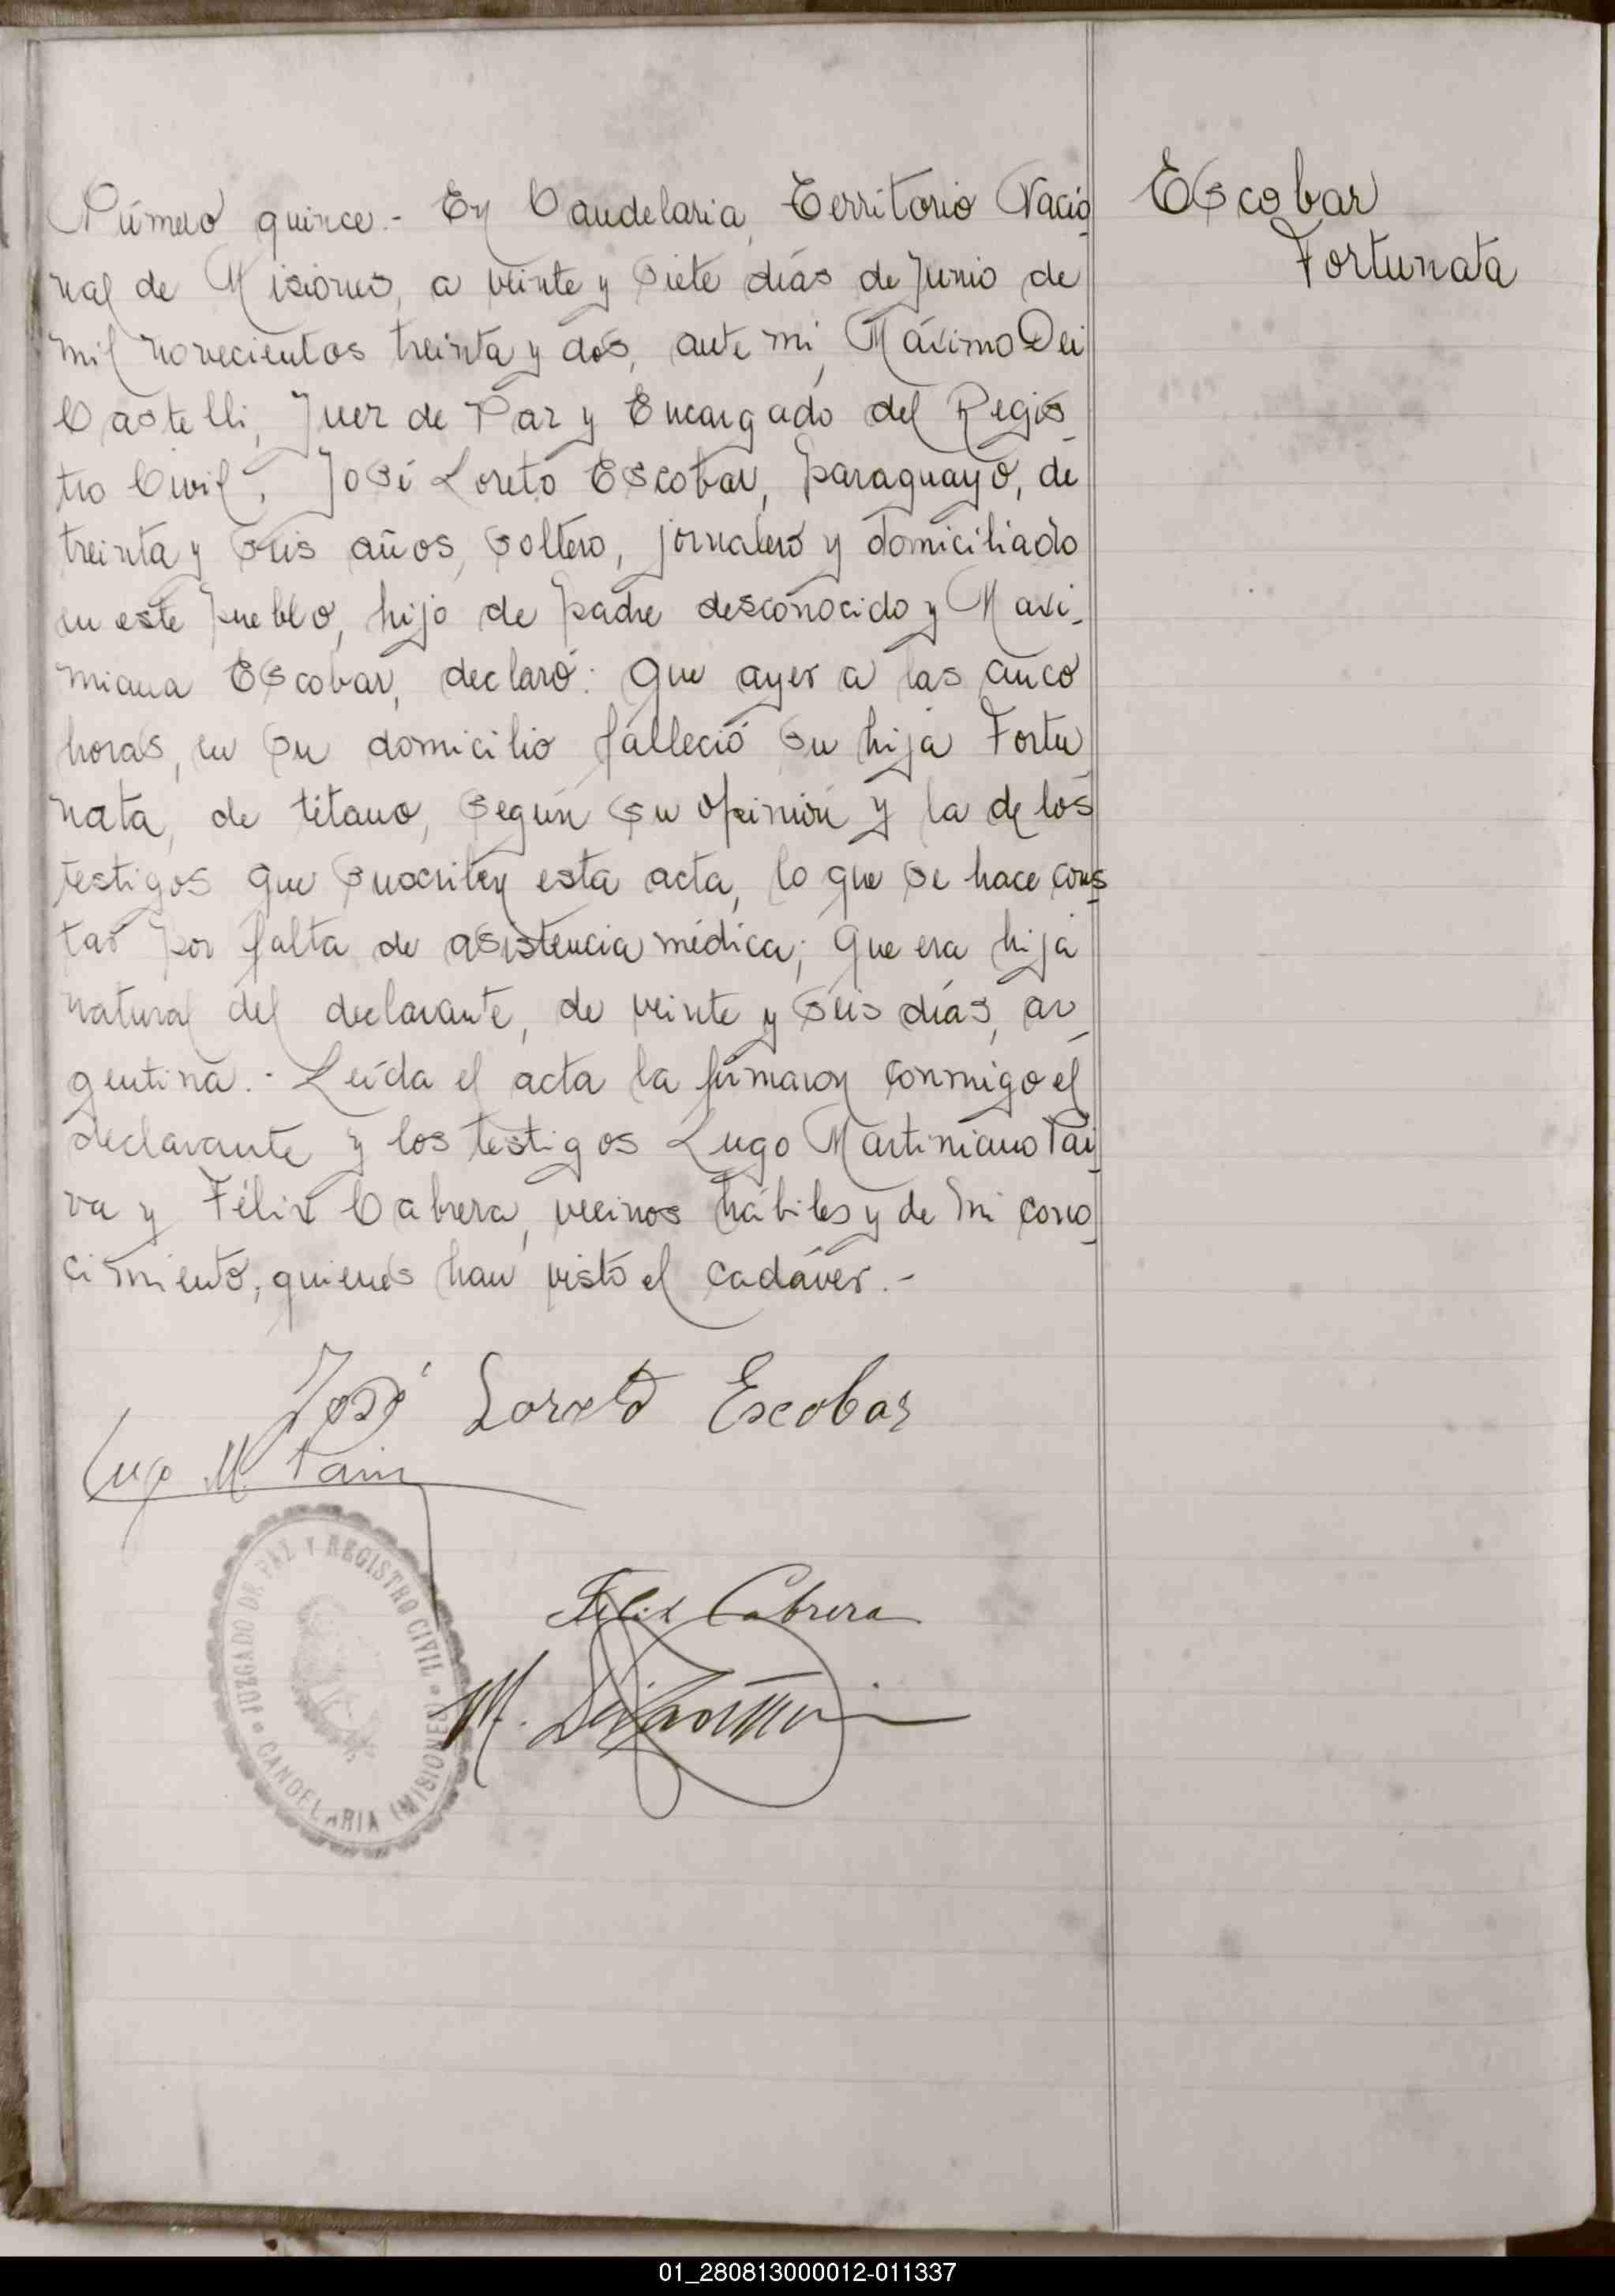 Número quince.- En Candelaria, Territorio Nacio-
nal de Misiones, a veinte y siete días de Junio de
mil novecientos treinta y dos, ante mi, Máximo Dei
Castelli, Juez de Paz y Encargado del Regis-
tro Civil, José Loreto Escobar, paraguayo, de
treinta y seis años, soltero, jornalero y domiciliado
en este pueblo, hijo de padre desconocido y Maxi-
miana Escobar, declaró: Que ayer a las cinco
horas, en su domicilio falleció su hija Fortu-
nata, de tétano, según su opinión y la de los
testigos que suscriben esta acta, lo que se hace cons-
tar por falta de asistencia médica; Que era hija
natural del declarante, de veinte y seis días, ar-
gentina.- Leída el acta la firmaron conmigo el
declarante y los testigos Lugo Martiniano Pai-
va y Félix Cabrera, vecinos hábiles y de mi cono-
cimiento, quienes han visto el cadáver.-
Escobar
Fortunata
José Loreto Escobar
Lugo M. Paiva
Felix Cabrera
M. Dei Castelli
JUZGADO DE PAZ Y REGISTRO CIVIL • CANDELARIA (MISIONES) •
01_280813000012-011337